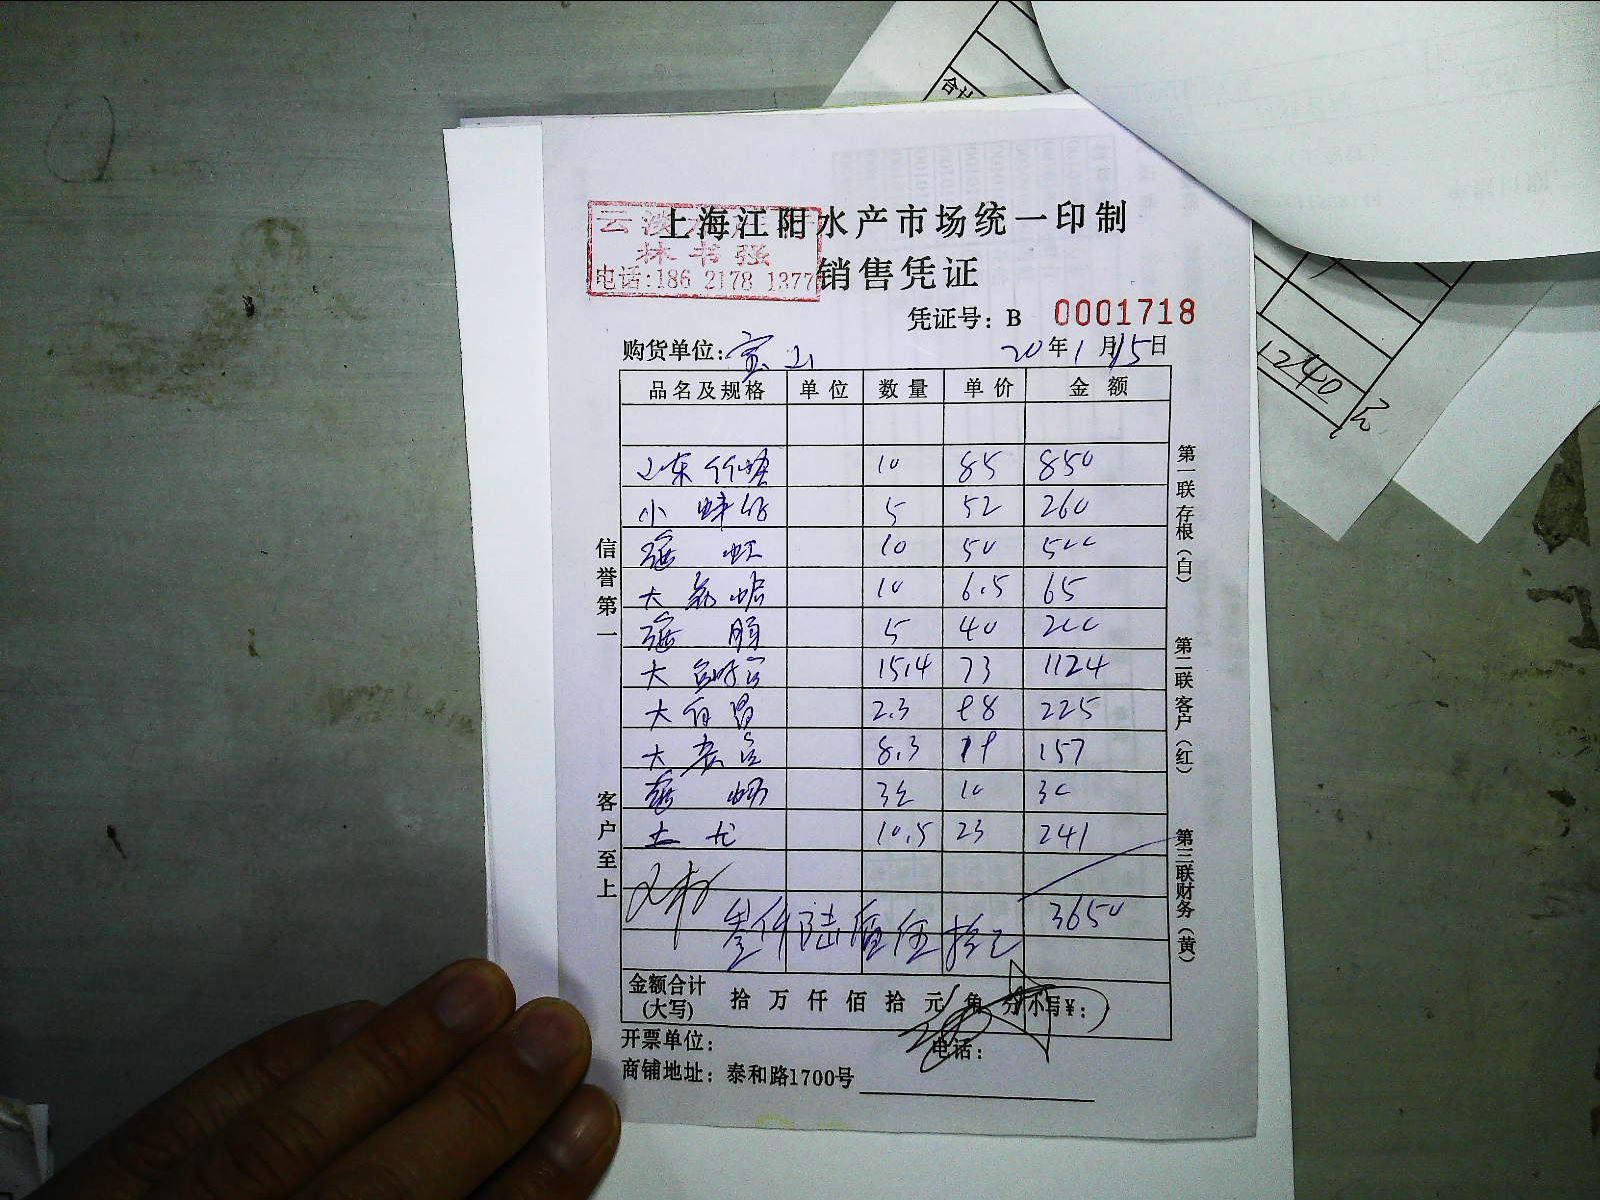 上海江阳水产市场统一印制
云
林书强
电话:186 2178 1377
销售凭证
凭证号: B 0001718
购货单位: 宝山 20年1月15日
品名及规格 单位 数量 单价 金额
山东竹蛏 10 85 850
小 5 52 260
10 50 500
大 10 6.5 65
5 40 200
大 15.4 73 1124
大白 2.3 98 225
大 8.3 19 157
3 10 30
10.5 23 241
叁仟陆佰伍拾元 3650
金额合计(大写) 拾 万 仟 佰 拾 元 角 分 小写¥:
开票单位: 电话:
商铺地址: 泰和路1700号
信誉第一
客户至上
第一联存根(白)
第二联客户(红)
第三联财务(黄)
合计
1240元